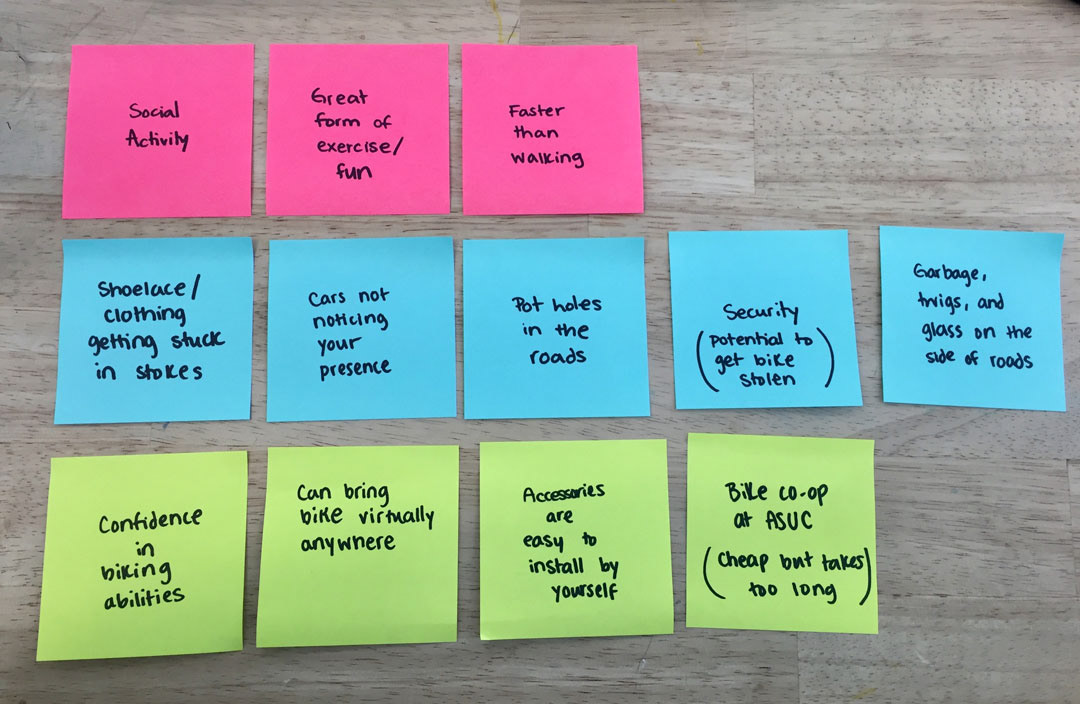 Social
Activity
Great
form of
exercise/
fun
Faster
than
walking
Shoelace/
clothing
getting stuck
in stokes
Cars not
noticing
your
presence
Pot holes
in the
roads
Security
(potential to
get bike
stolen)
Garbage,
twigs, and
glass on the
side of roads
Confidence
in
biking
abilities
Can bring
bike virtually
anywhere
Accessories
are
easy to
install by
yourself
Bike co-op
at ASUC
(cheap but takes
too long)